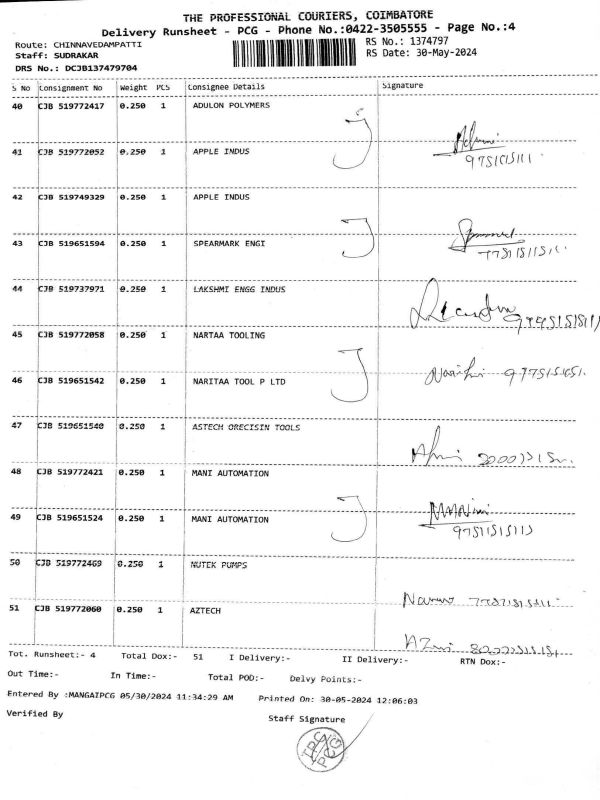 THE PROFESSIONAL COURIERS, COIMBATORE
Delivery Runsheet - PCG - Phone No.:0422-3505555 - Page No.:4
Route: CHINNAVEDAMPATTI
RS No.: 1374797
Staff: SUDRAKAR
RS Date: 30-May-2024
DRS No.: DCJB137479704
S No Consignment No Weight PCS Consignee Details Signature
40 CJB 519772417 0.250 1 ADULON POLYMERS
41 CJB 519772052 0.250 1 APPLE INDUS
42 CJB 519749329 0.250 1 APPLE INDUS
43 CJB 519651594 0.250 1 SPEARMARK ENGI
44 CJB 519737971 0.250 1 LAKSHMI ENGG INDUS
45 CJB 519772058 0.250 1 NARTAA TOOLING
46 CJB 519651542 0.250 1 NARITAA TOOL P LTD
47 CJB 519651540 0.250 1 ASTECH ORECISIN TOOLS
48 CJB 519772421 0.250 1 MANI AUTOMATION
49 CJB 519651524 0.250 1 MANI AUTOMATION
50 CJB 519772469 0.250 1 NUTEK PUMPS
51 CJB 519772060 0.250 1 AZTECH
Tot. Runsheet:- 4 Total Dox:- 51 I Delivery:- II Delivery:- RTN Dox:-
Out Time:- In Time:- Total POD:- Delvy Points:-
Entered By :MANGAIPCG 05/30/2024 11:34:29 AM Printed On: 30-05-2024 12:06:03
Verified By Staff Signature
TPC
PCG